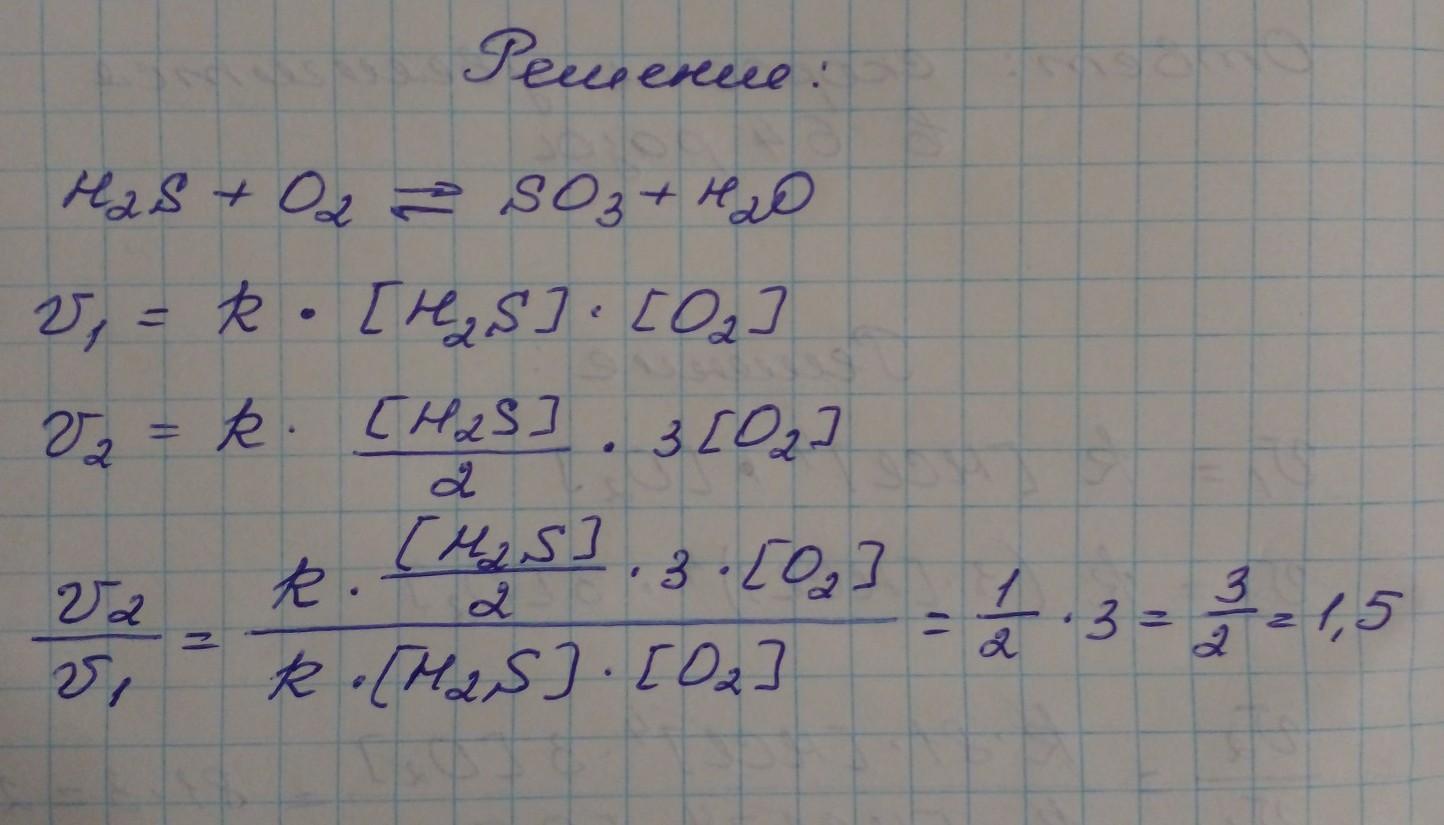 Решение:
H₂S + O₂ ⇌ SO₃ + H₂O
v₁ = k · [H₂S] · [O₂]
v₂ = k · [H₂S]/2 · 3[O₂]
v₂/v₁ = (k · [H₂S]/2 · 3 · [O₂])/(k · [H₂S] · [O₂]) = 1/2 · 3 = 3/2 = 1,5